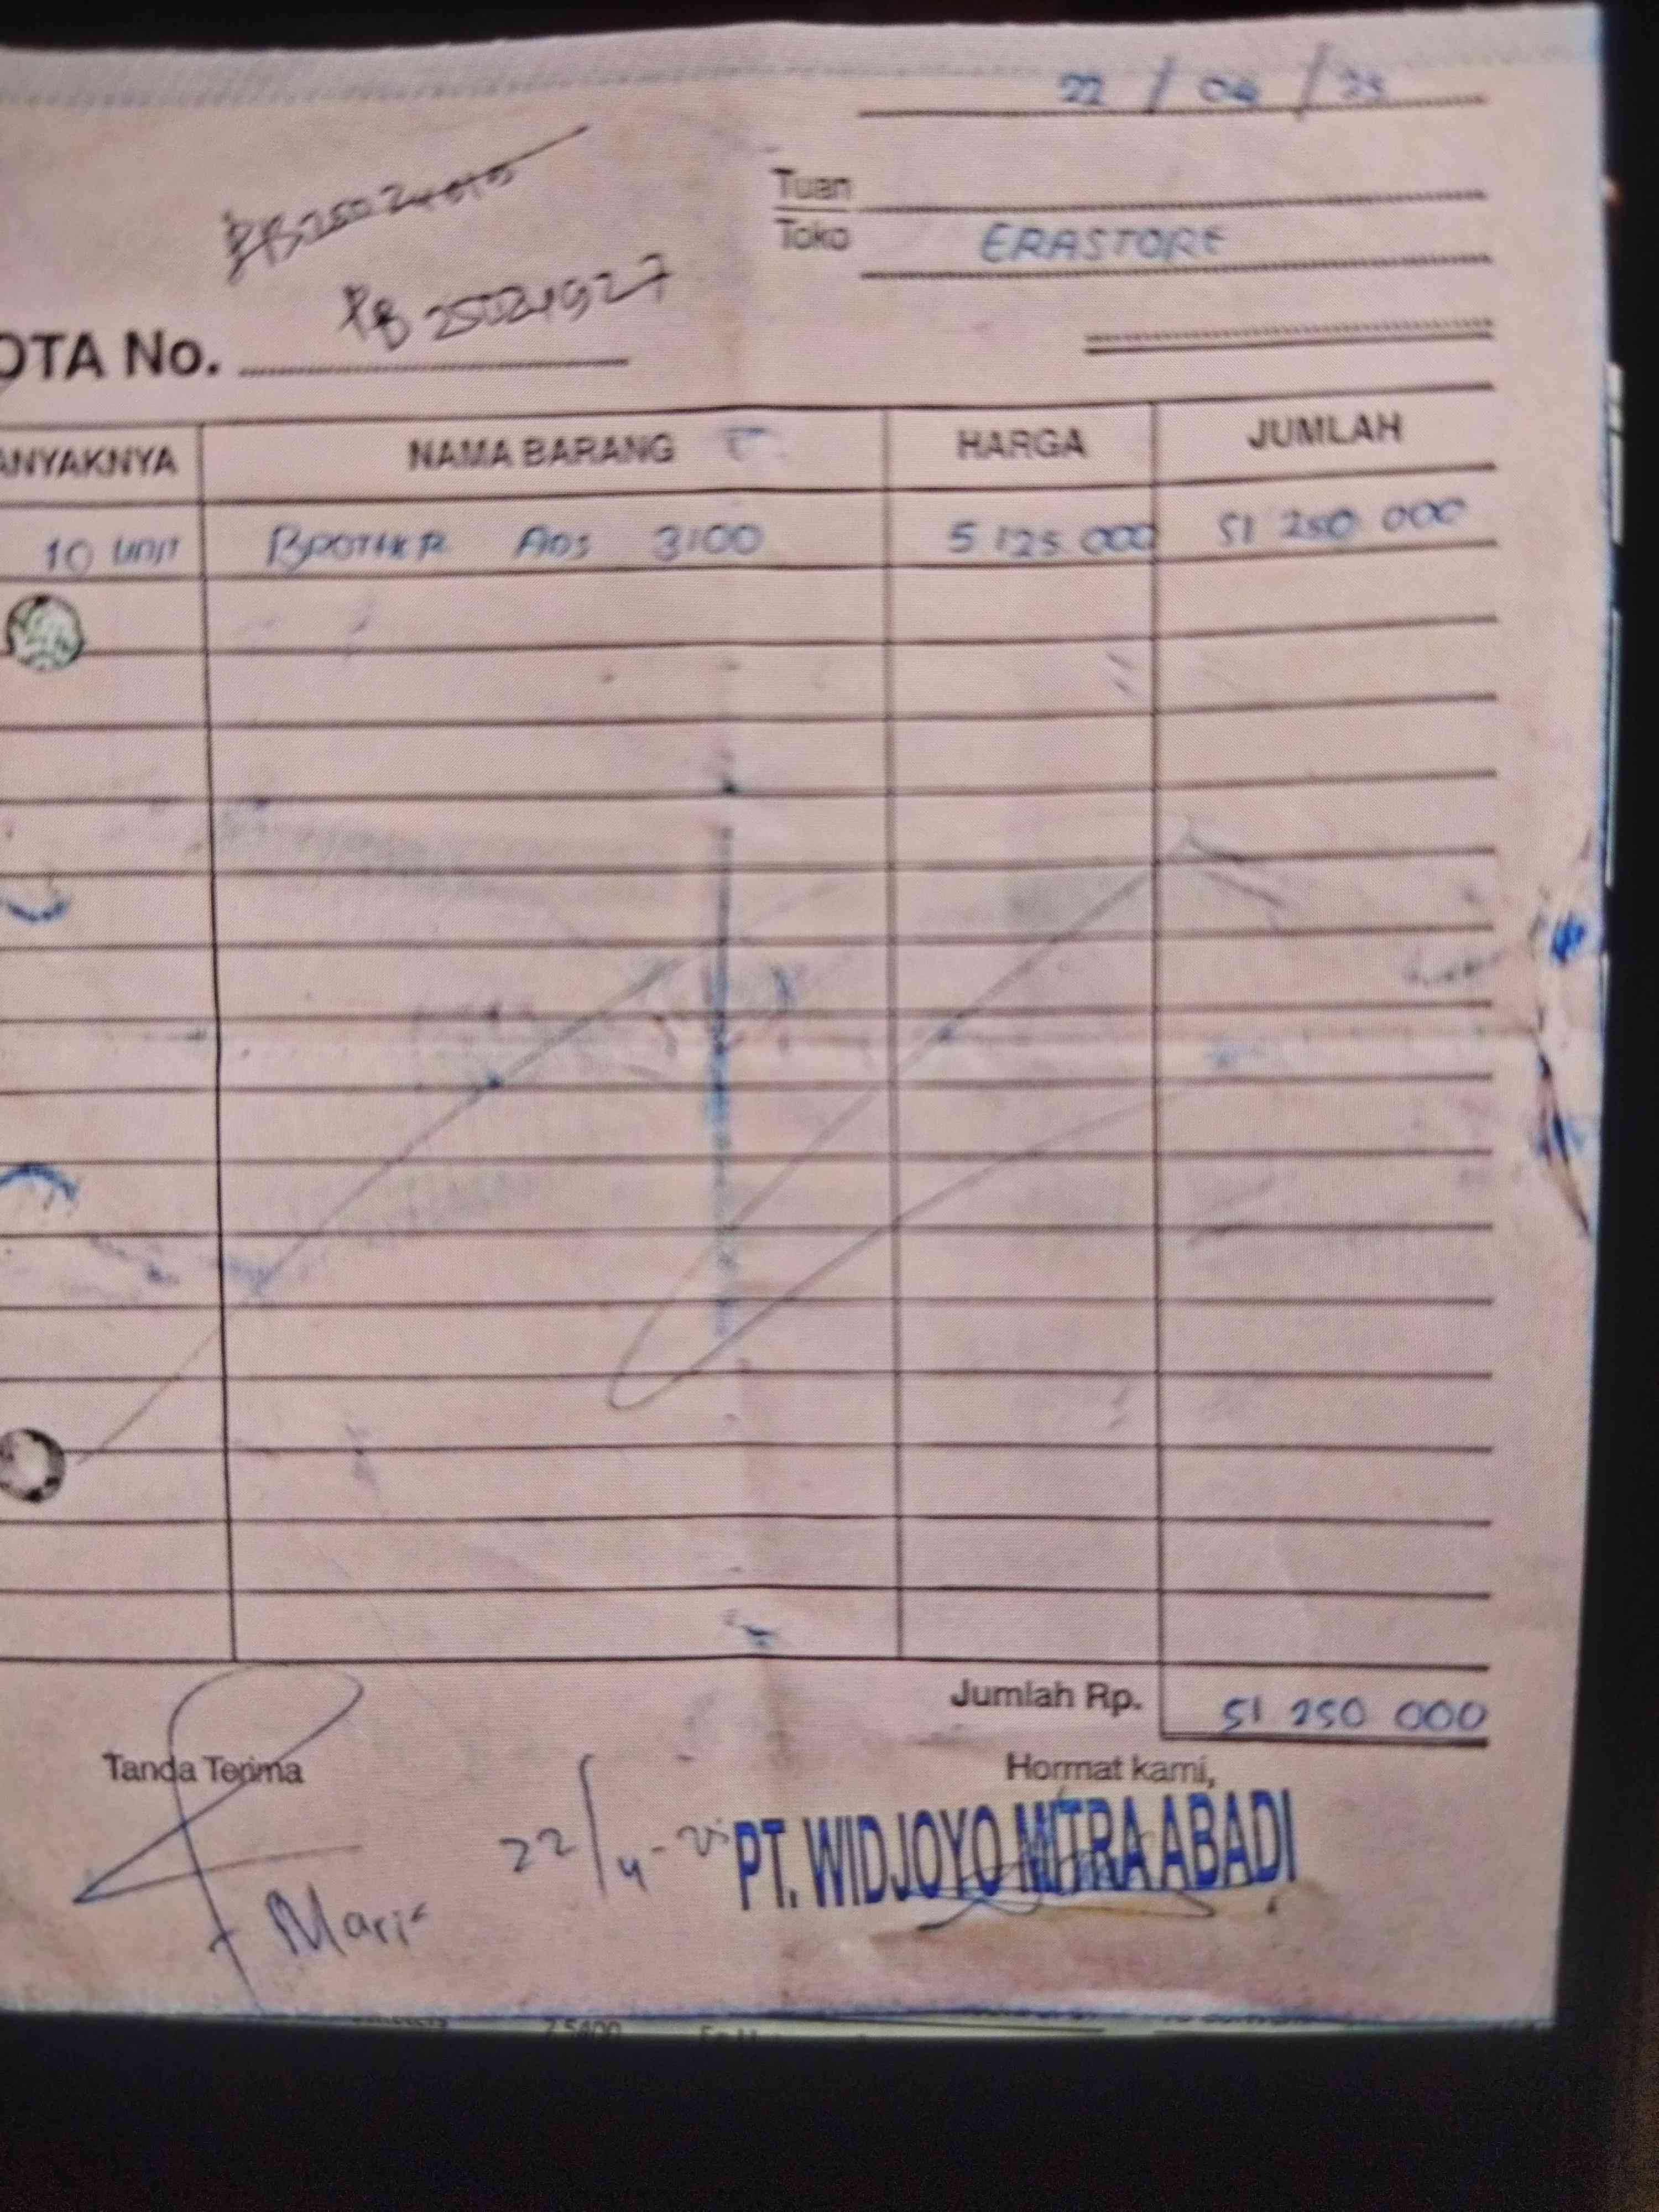 22 / 04 / 25
Tuan
Toko ERASTORE
PB 25024927
OTA No.
ANYAKNYA NAMA BARANG HARGA JUMLAH
10 UNIT BROTHER ADS 3100 5 125 000 51 250 000
Jumlah Rp. 51 250 000
Tanda Terima Hormat kami,
22/4-25 PT. WIDJOYO MITRA ABADI